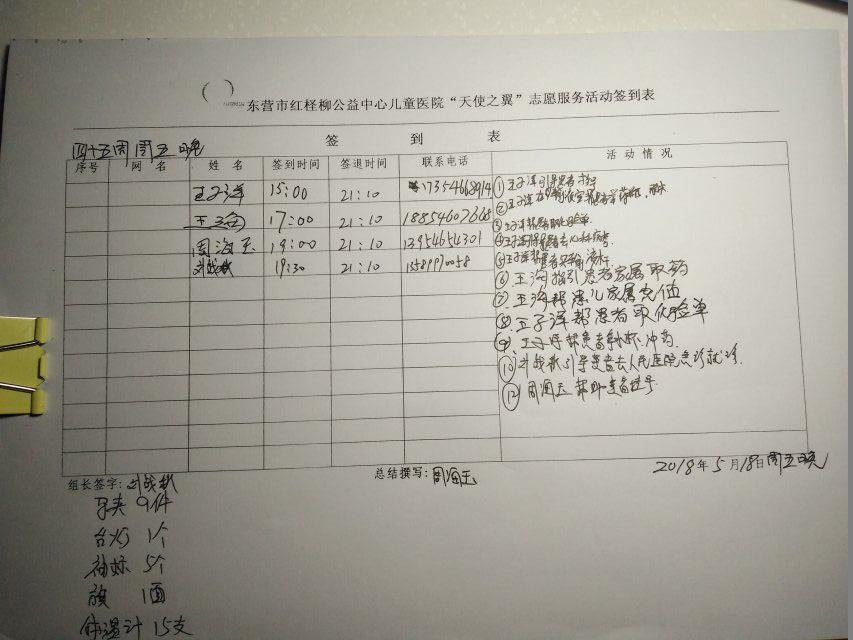 东营市红柽柳公益中心儿童医院“天使之翼”志愿服务活动签到表
签 到 表
四十五周 周五晚
序号 网名 姓名 签到时间 签退时间 联系电话 活动情况
王子洋 15:00 21:10 17354668914
王海 17:00 21:10
周海玉 19:00 21:10 13954654301
刘战秋 19:30 21:10 13589970058
①王子洋引导患者
②王子洋
③王子洋帮患者取化验单
④王子洋
⑤王子洋帮患者
⑥王海指引患者家属取药
⑦王海帮患儿家属充值
⑧王子洋帮患者取化验单
⑨王子洋帮患者 冲药
⑩刘战秋引导患者去人民医院急诊就诊.
⑫周海玉帮助患者挂号
组长签字:刘战秋 总结撰写:周海玉 2018年5月18日周五晚
马夹 9件
台灯 1个
袖标 5个
旗 1面
体温计 15支